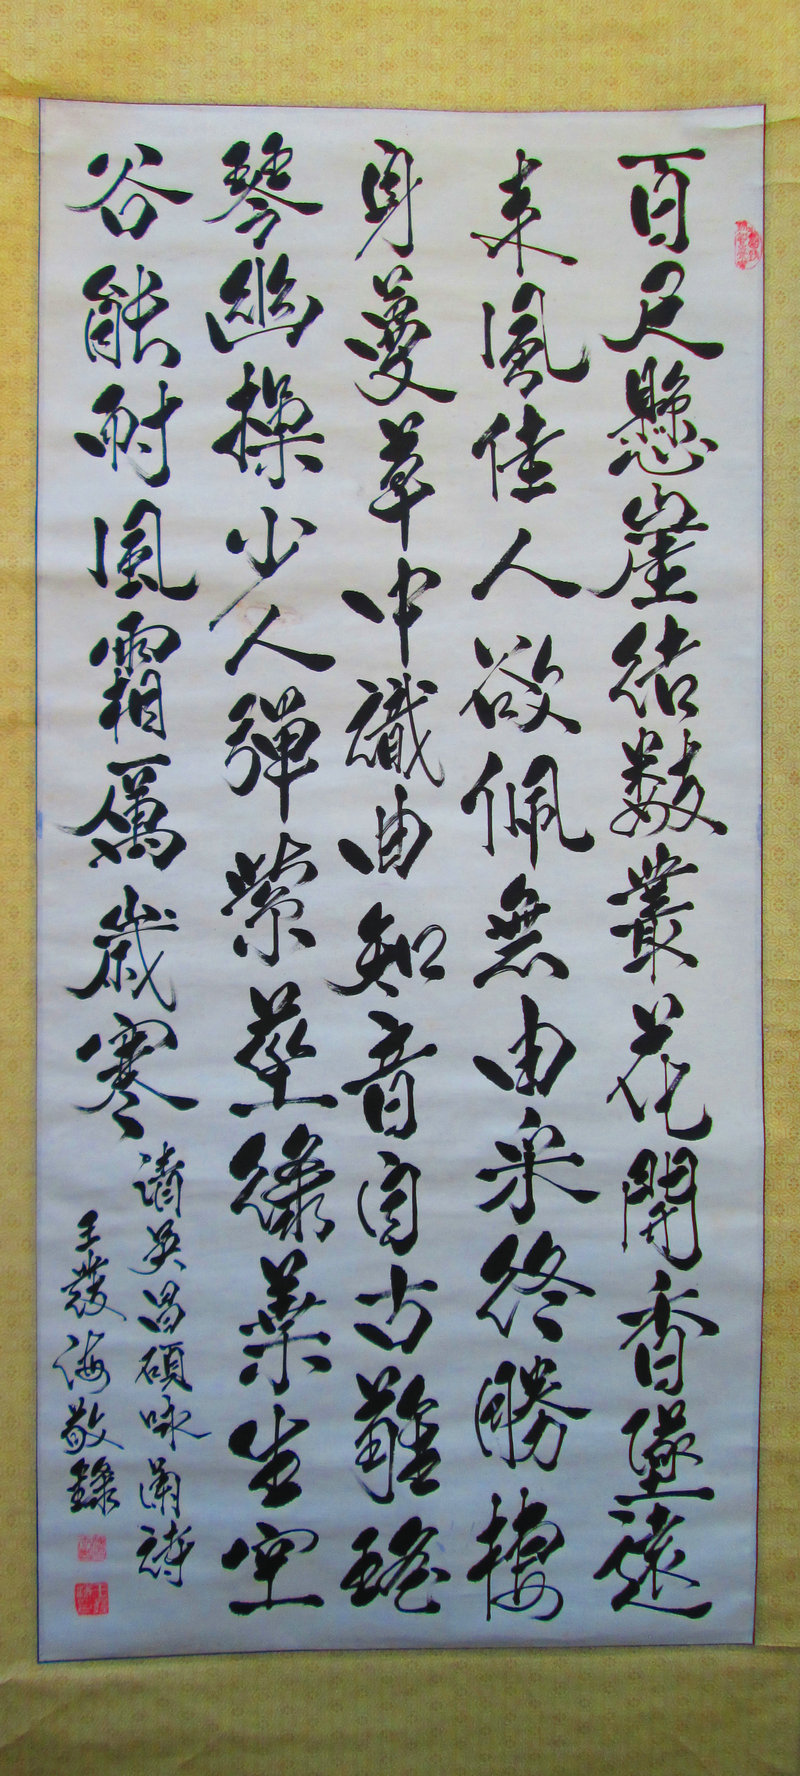 百尺懸崖結数叢花開香墜遠
来風佳人欲佩無由采終勝棲
身蔓草中識曲知音自古難瑤
琴幽操少人彈紫莖綠葉生空
谷能耐風霜厲歲寒
清吳昌碩咏蘭詩
王發海敬錄